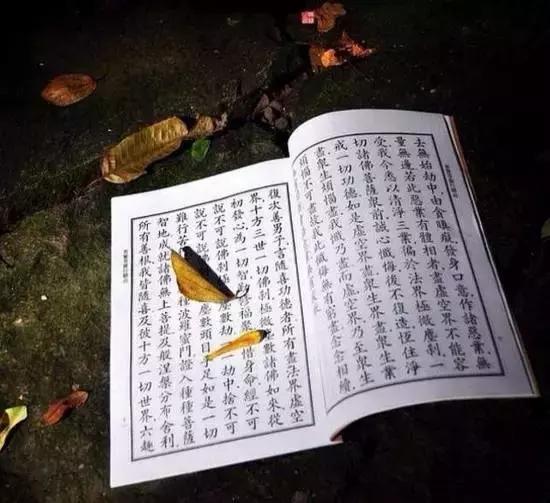 去無始劫中由貪瞋癡發身口意作諸惡業無
量無邊若此惡業有體相者盡虛空界不能容
受我今悉以清淨三業徧於法界極微塵剎一
切諸佛菩薩眾前誠心懺悔後不復造恆住淨
戒一切功德如是虛空界盡眾生界盡眾生業
盡眾生煩惱盡我懺乃盡而虛空界乃至眾生
煩惱不可盡故我此懺悔無有窮盡念念相續
復次善男子言隨喜功德者所有盡法界虛空
界十方三世一切佛剎極微塵數諸佛如來從
初發心為一切智福聚惜身命經不可
說不可說佛剎塵數劫一一劫中捨不可
說不可說塵數頭目手足如是一切
難行種波羅蜜門證入種種菩薩
智地成就諸佛無上菩提及般涅槃分布舍利
所有善根我皆隨喜及彼十方一切世界六趣